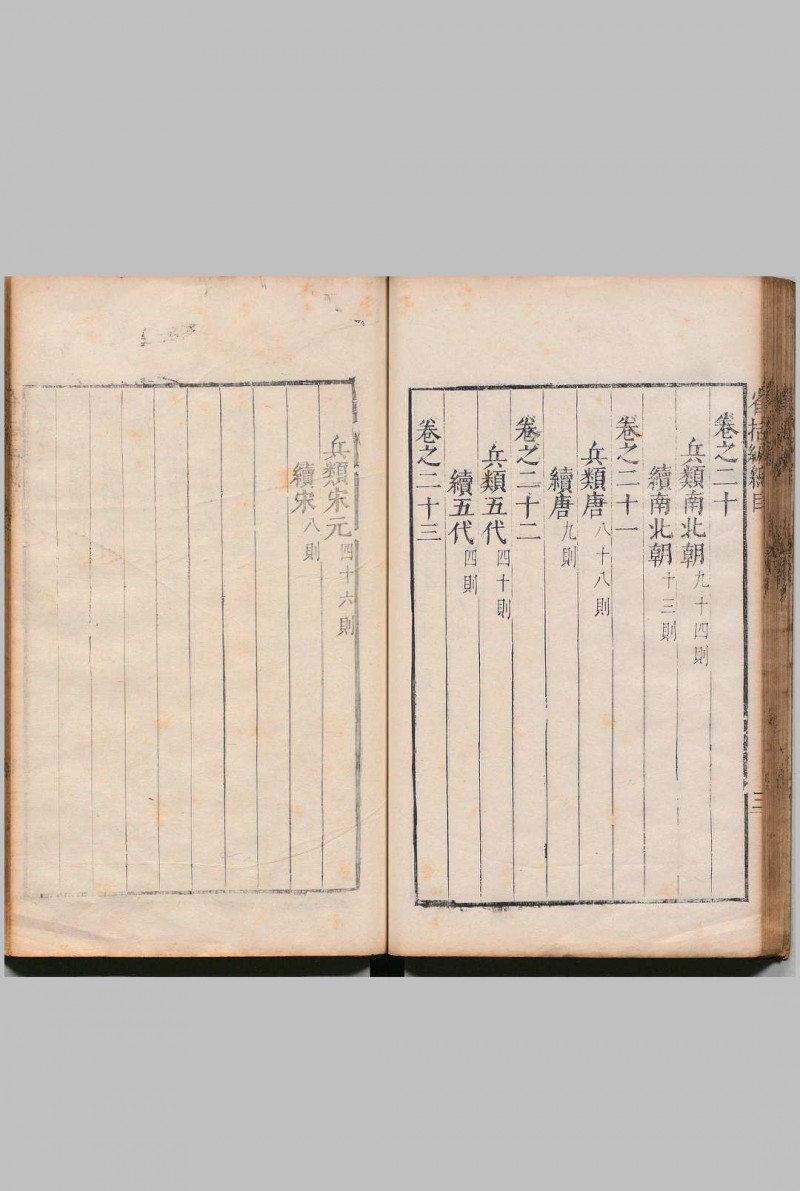 省括編總目
卷之二十
兵類南北朝九十四則
續南北朝十三則
卷之二十一
兵類唐八十八則
續唐九則
卷之二十二
兵類五代四十則
續五代四則
卷之二十三
三
兵類宋元四十六則
續宋八則